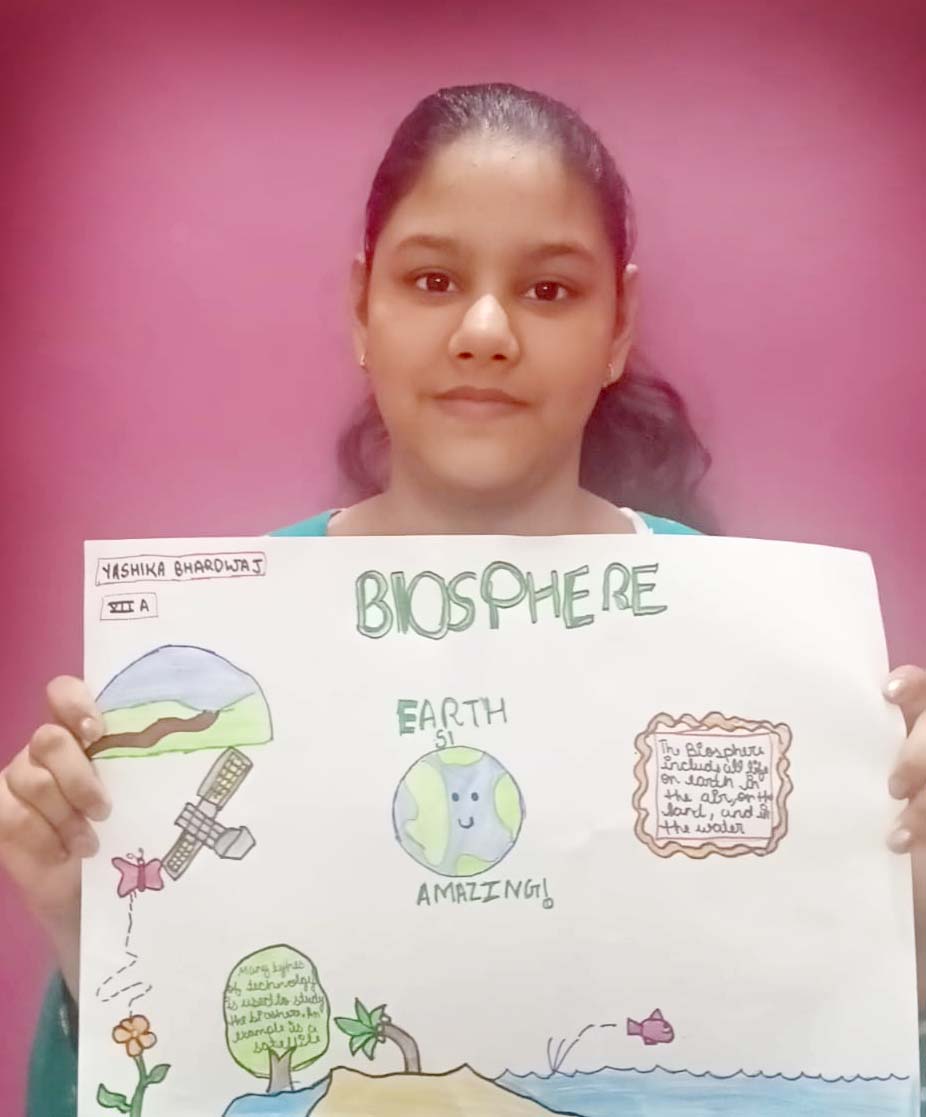 YASHIKA BHARDWAJ
VII A
BIOSPHERE
EARTH
SI
AMAZING!
Th Biosphere
includs all life
on earth In
the air, on the
land, and in
the water
Many types
of technolgy
is used to study
the bioshere. An
example is a
satellite